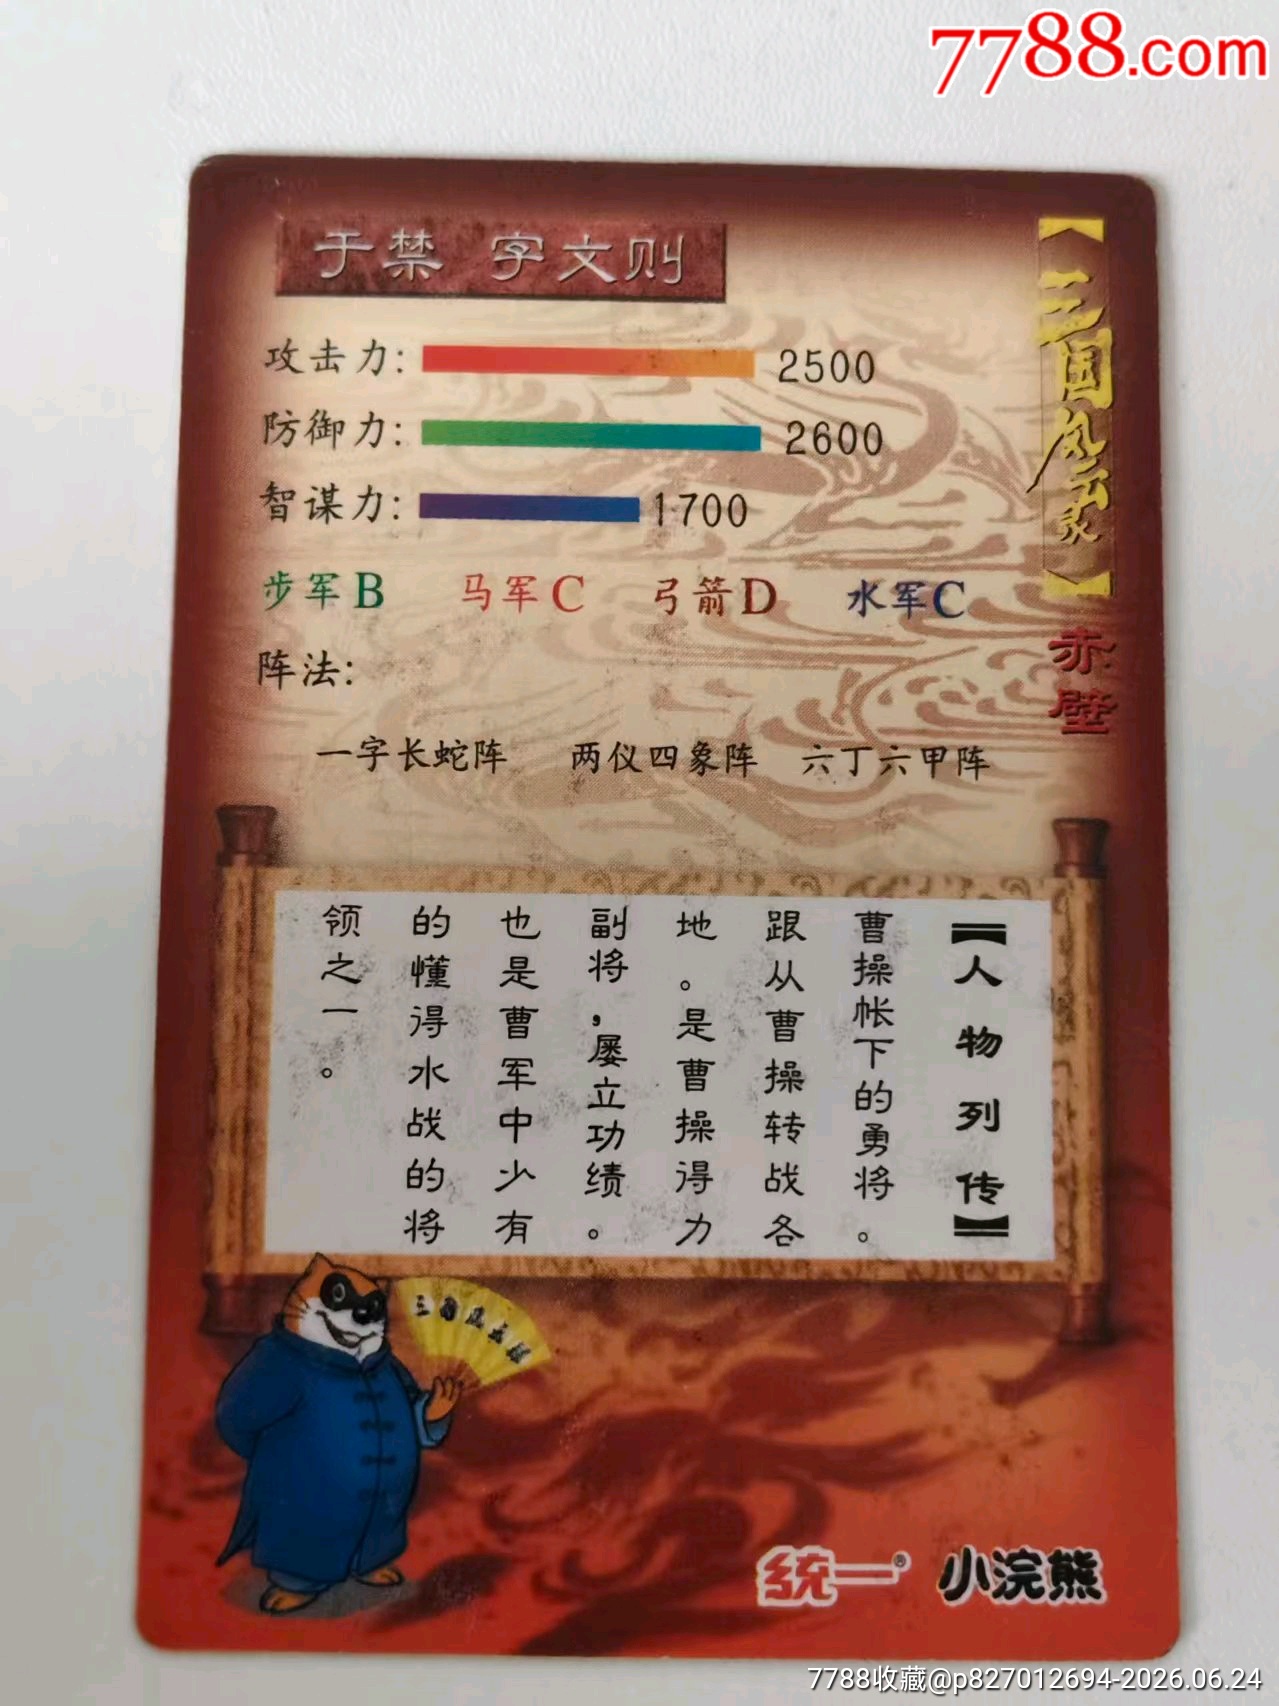 7788.com
于禁 字文则
攻击力: 2500
防御力: 2600
智谋力: 1700
步军B 马军C 弓箭D 水军C
阵法:
一字长蛇阵 两仪四象阵 六丁六甲阵
【三国风云录】
赤壁
【人物列传】
曹操帐下的勇将。
跟从曹操转战各
地。是曹操得力
副将,屡立功绩。
也是曹军中少有
的懂得水战的将
领之一。
三国风云录
统一® 小浣熊
7788收藏@p827012694-2026.06.24